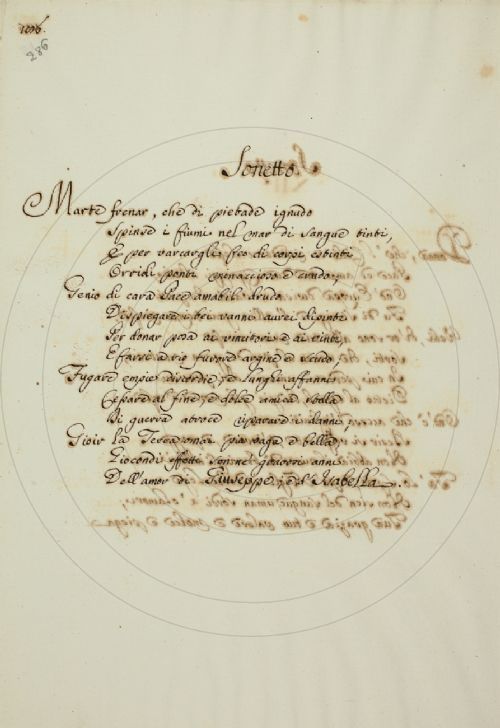 286
Sonetto.
Marte frenar, che di pietade ignudo
Spinse i fiumi nel mar di sangue tinti,
E per varcargli feo di corpi estinti
Orridi ponti minaccioso e crudo;
Genio di cara Pace amabil drudo
Dispiegare i bei vanni aurei dipinti
Per donar posa ai vincitori e ai vinti,
E farsi a rio furore argine e scudo,
Fugare empie discordie, e lunghi affanni
al fine, e dolce amica stella
Di guerra atroce i danni,
Gioir la Terra omai più vaga e bella
Giocondi effetti son ne' anni
Dell'amor di Giuseppe, e d'Isabella.